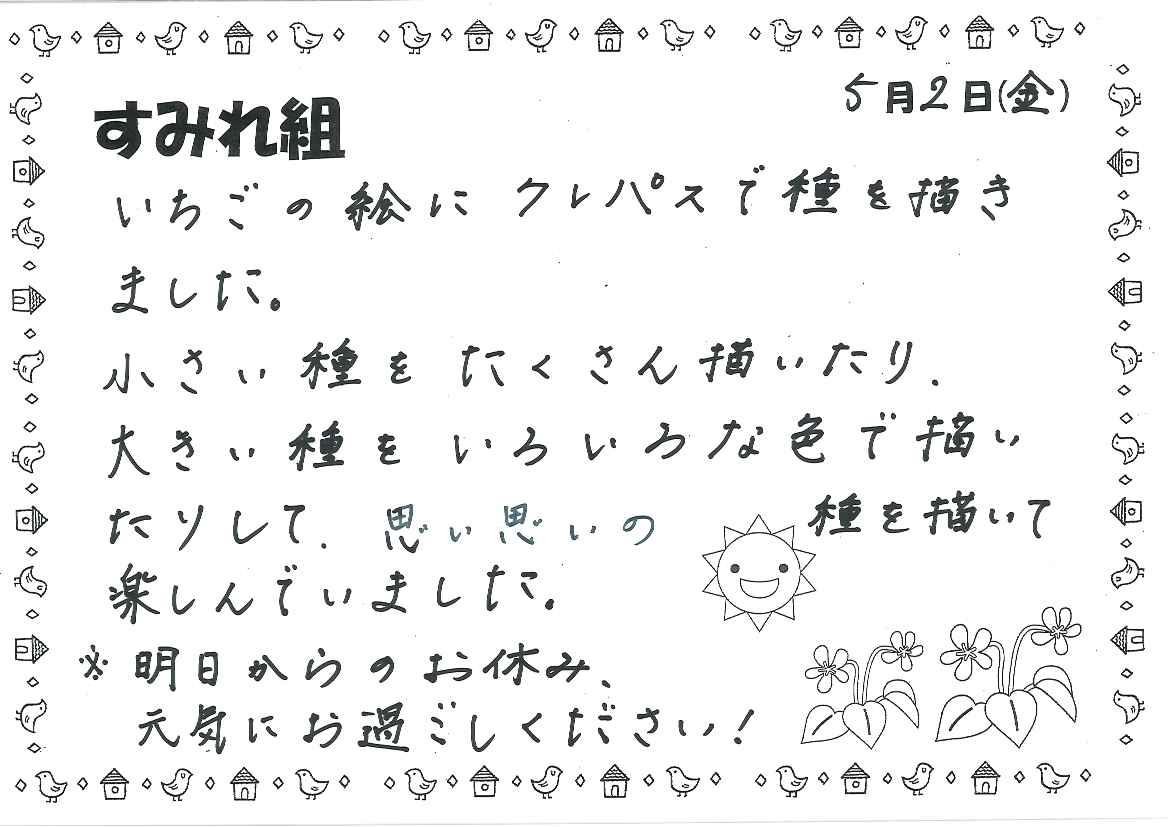 5月2日(金)
すみれ組
いちごの絵にクレパスで種を描き
ました。
小さい種をたくさん描いたり、
大きい種をいろいろな色で描い
たりして、思い思いの種を描いて
楽しんでいました。
※明日からのお休み、
元気にお過ごしください!